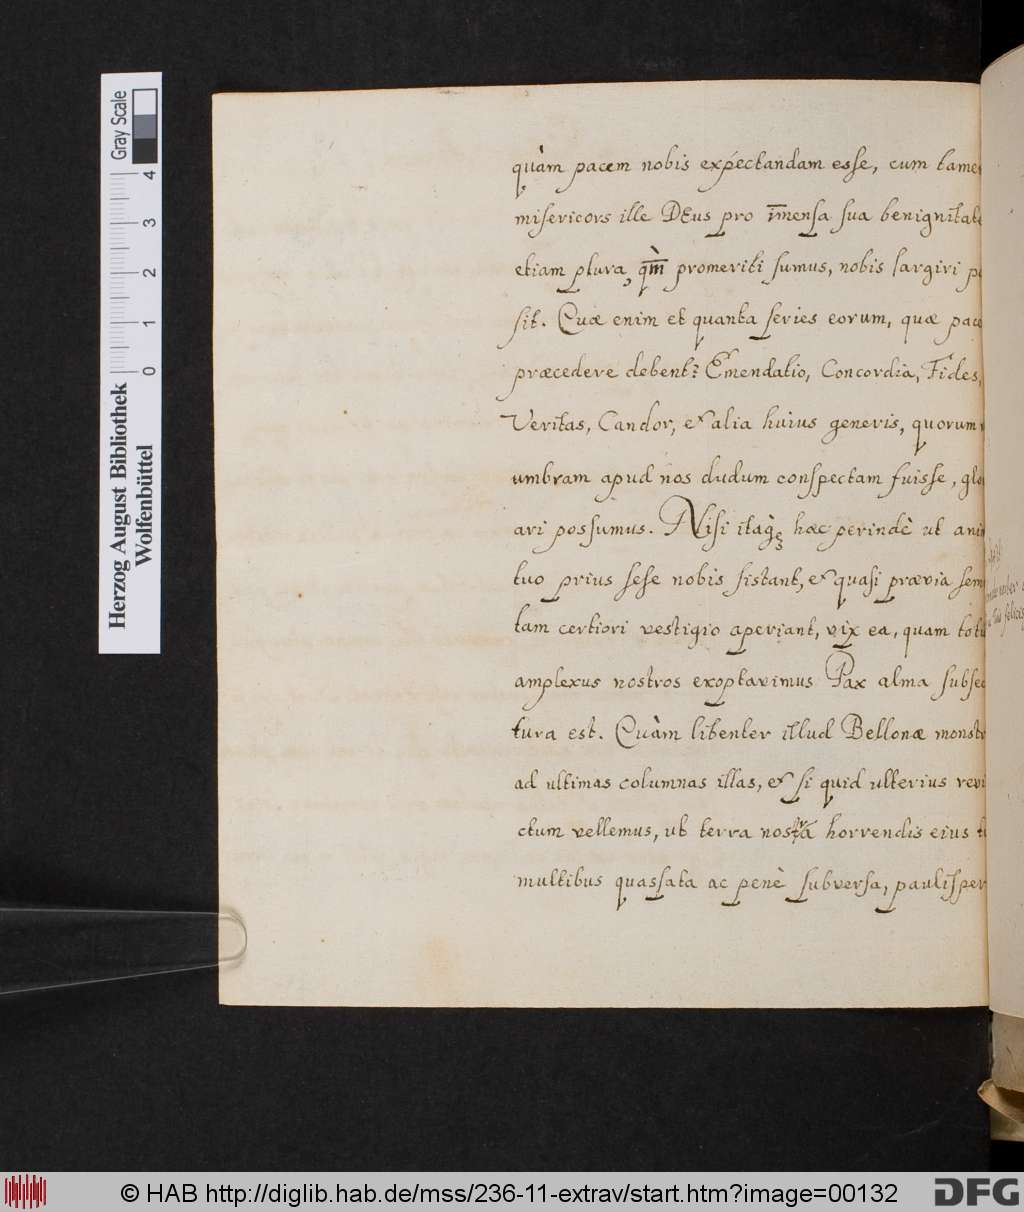 quàm pacem nobis expectandam esse, cum tame
misericors ille DEus pro im̅ensa sua benignitat
etiam plura, qm̅̀ promeriti sumus, nobis largiri p
sit. Quæ enim et quanta series eorum, quæ pac
præcedere debent? Emendatio, Concordia, Fides,
Veritas, Candor, & alia huius generis, quorum
umbram apud nos dudum conspectam fuisse, glo
ari possumus. Nisi itaq́ꝫ hæc perindè ut ani
tuo prius sese nobis sistant, & quasi prævia sem
tam certiori vestigio aperiant, vix ea, quam tot
amplexus nostros exoptavimus Pax alma subse
tura est. Quàm libenter illud Bellonæ monstr
ad ultimas columnas illas, & si quid ulterius revi
ctum vellemus, ut terra nostrâ horrendis eius t
multibus quassata ac penè subversa, paulisper
Herzog August Bibliothek
Wolfenbüttel
Gray Scale
0 1 2 3 4
© HAB http://diglib.hab.de/mss/236-11-extrav/start.htm?image=00132
DFG